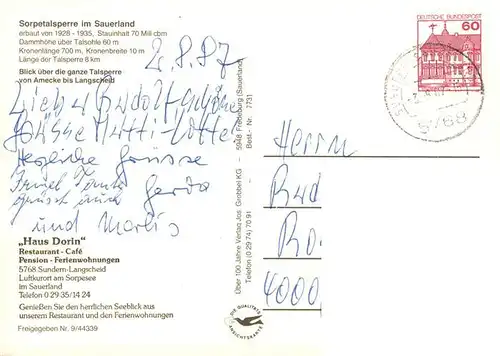 Sorpetalsperre im Sauerland
erbaut von 1928 - 1935, Stauinhalt 70 Mill cbm
Dammhöhe über Talsohle 60 m
Kronenlänge 700 m, Kronenbreite 10 m
Länge der Talsperre 8 km
Blick über die ganze Talsperre
von Amecke bis Langscheid
2.8.87
Lieber Rudolf
Grüsse Mutti
Herzliche Grüsse
Gerda
und
„Haus Dorin"
Restaurant - Café
Pension - Ferienwohnungen
5768 Sundern-Langscheid
Luftkurort am Sorpesee
im Sauerland
Telefon 0 29 35/14 24
Genießen Sie den herrlichen Seeblick aus
unserem Restaurant und den Ferienwohnungen
Freigegeben Nr. 9/44339
Über 100 Jahre Verlag Jos. Grobbel KG - 5948 Fredeburg (Sauerland)
Telefon (0 29 74) 70 91 · Best.- Nr. 7731
DIE QUALITÄTS
ANSICHTSKARTE
DEUTSCHE BUNDESPOST
60
5768
Herrn
Rud
Ro.
4000